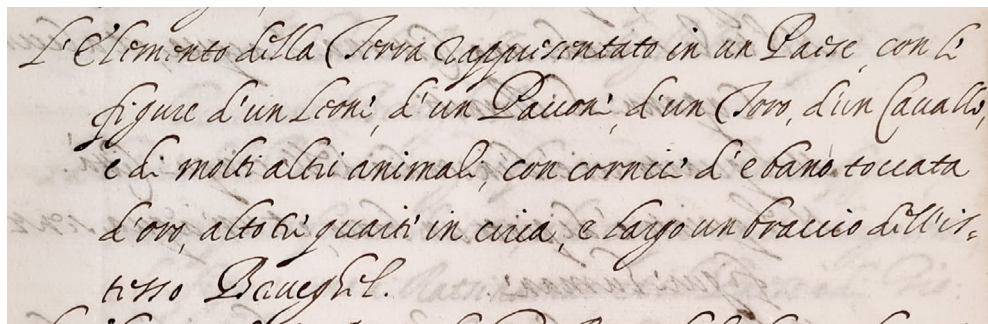 L'Elemento della Terra rappresentato in un Paese, con le
figure d'un Leone, d'un Pauone, d'un Toro, d'un Cauallo,
e di molti altri animali, con cornice d'ebano toccata
d'oro, alto trè quarti in circa, e largo un braccio dell'is-
tesso Baueghel.